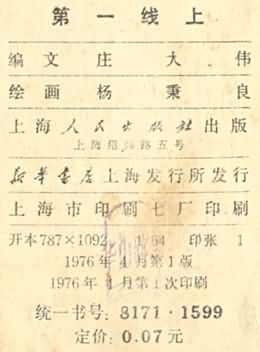 第一线上
编文 庄大伟
绘画 杨秉良
上海人民出版社出版
上海绍兴路五号
新华书店上海发行所发行
上海市印刷七厂印刷
开本787×1092 1/64 印张 1
1976年4月第1版
1976年4月第1次印刷
统一书号：8171·1599
定价：0.07元